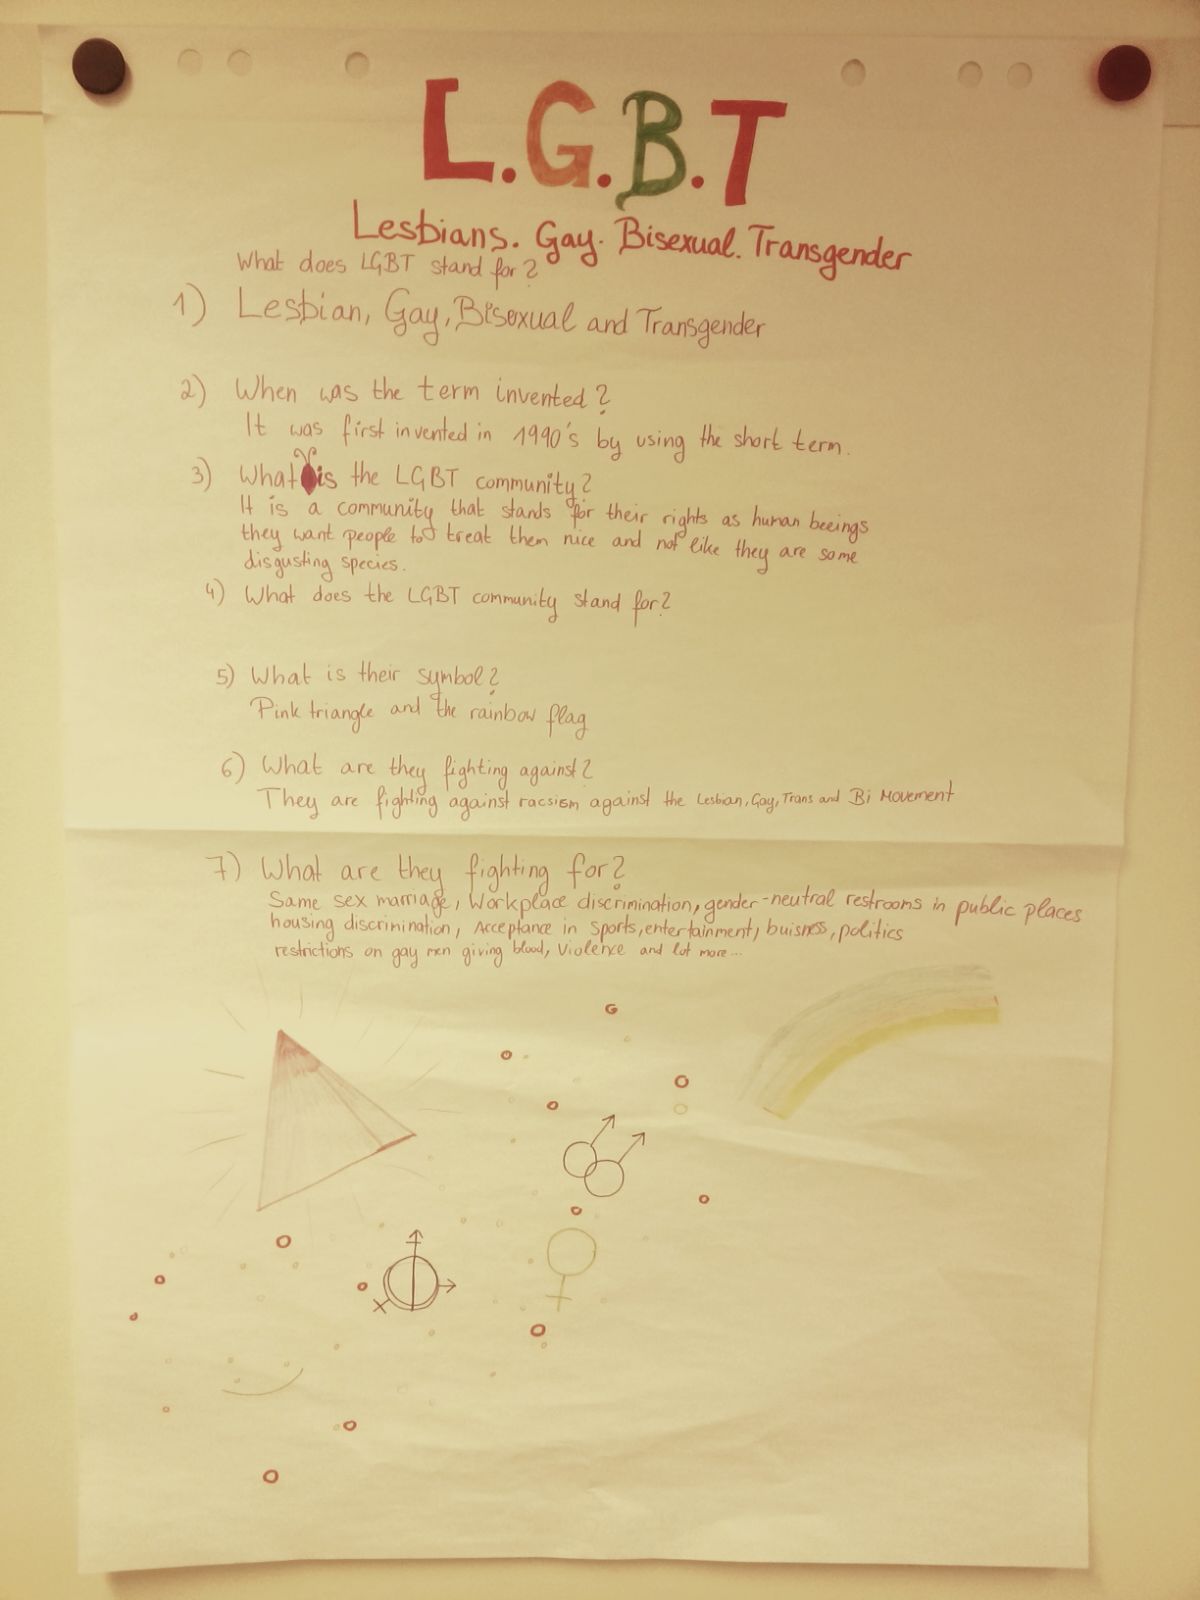 L.G.B.T
Lesbians. Gay. Bisexual. Transgender
What does LGBT stand for?
1) Lesbian, Gay, Bisexual and Transgender
2) When was the term invented?
It was first invented in 1990's by using the short term.
3) What is the LGBT community?
It is a community that stands for their rights as human beeings
they want people to treat them nice and not like they are some
disgusting species.
4) What does the LGBT community stand for?
5) What is their symbol?
Pink triangle and the rainbow flag
6) What are they fighting against?
They are fighting against racsism against the Lesbian, Gay, Trans and Bi Movement
7) What are they fighting for?
Same sex marriage, Workplace discrimination, gender-neutral restrooms in public places
housing discrimination, Acceptance in Sports, entertainment, buisness, politics
restrictions on gay men giving blood, Violence and lot more...